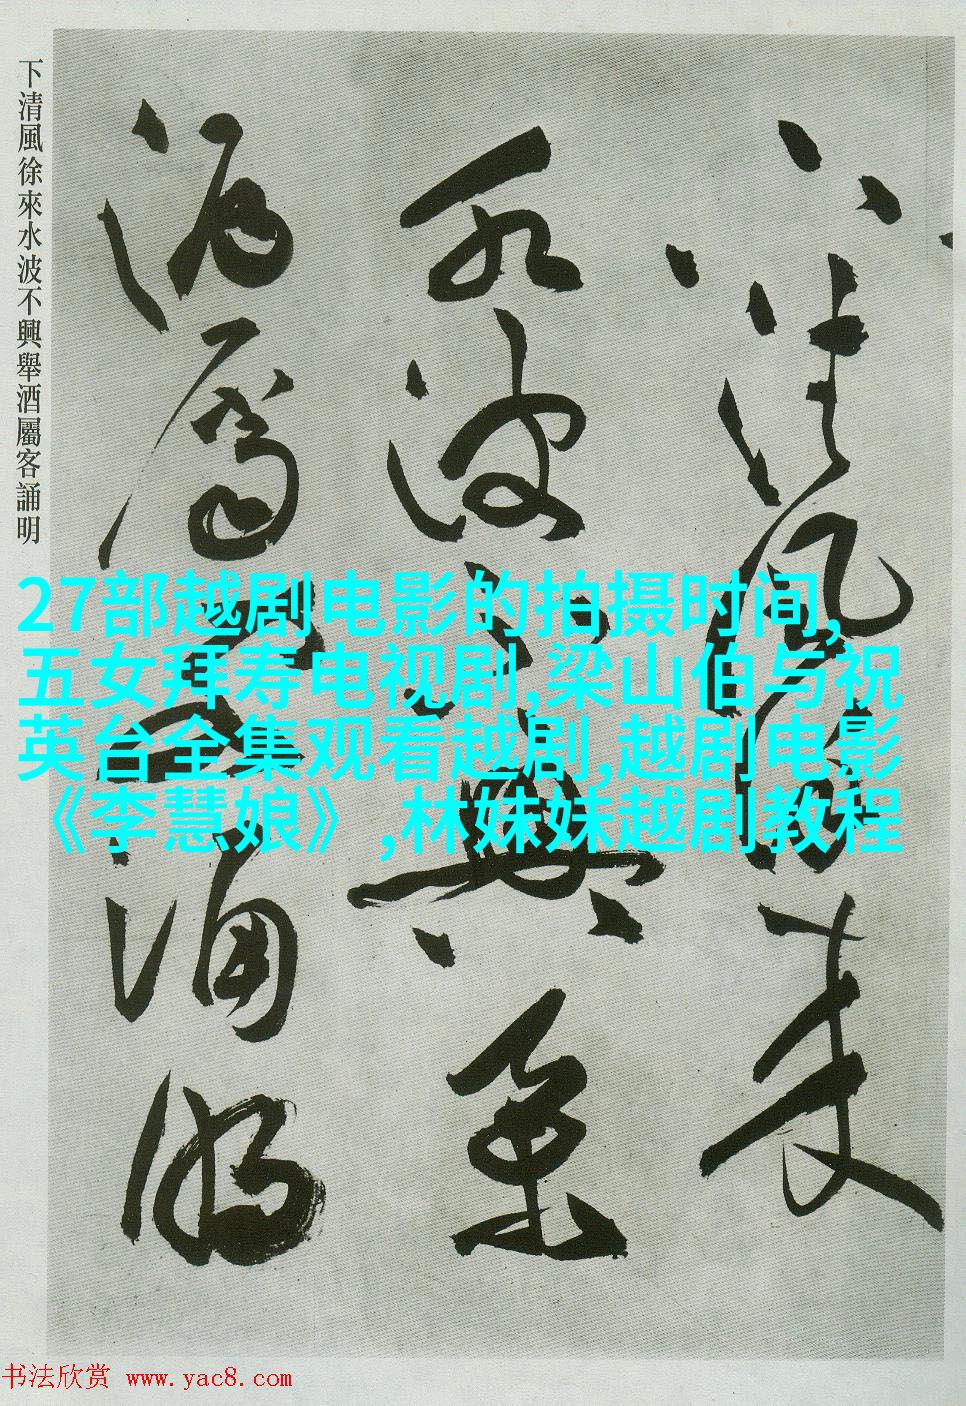 下清風徐來水波不興舉酒屬客誦明
清風徐來
水波不興舉
酒屬客誦明
27部越剧电影的拍摄时间,
五女拜寿电视剧,梁山伯与祝
英台全集观看越剧,越剧电影
《李慧娘》,林妹妹越剧教程
书法欣赏 www.yac8.com